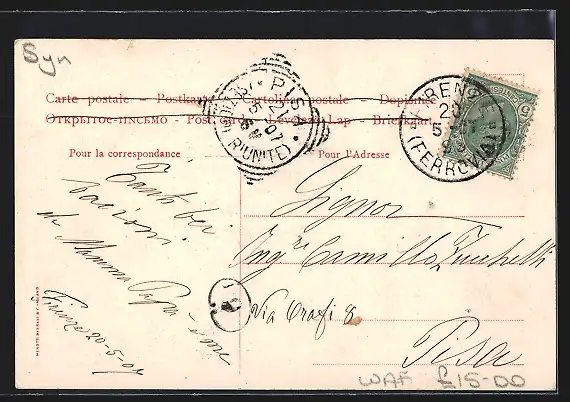 Syn
Carte postale – Postkarte – Cartolina postale – Dopisnice
Открытое-письмо – Post Card – Levelezö Lap – Briefkaart
PISA
21 5 07
(RIUNITE)
FIRENZE
20 5
(FERROVIA)
Pour la correspondance
Pour l'Adresse
Tanti bei
bacioni
da Mamma Papà
Firenze 20-5-07
Signor
Ing.re Camillo
Via Orafi 8
Pisa
WAF £15-00